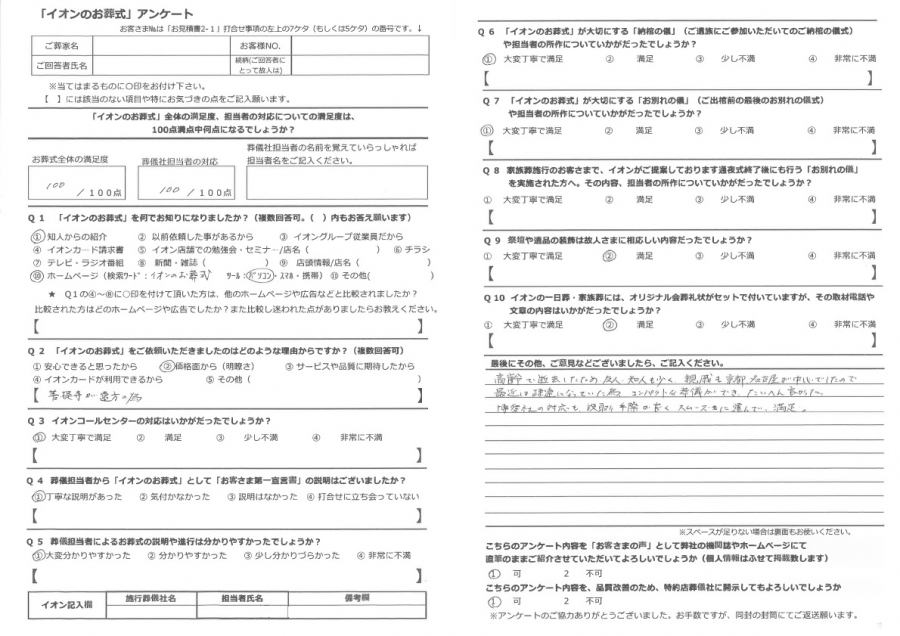 「イオンのお葬式」アンケート
お客さま№は「お見積書2-1」打合せ事項の左上の7ケタ（もしくは5ケタ）の番号です。↓
ご葬家名 お客様NO.
ご回答者氏名 続柄(ご回答者にとって故人は)
※当てはまるものに○印をお付け下さい。
【 】には該当のない項目や特にお気づきの点をご記入願います。
「イオンのお葬式」全体の満足度、担当者の対応についての満足度は、
100点満点中何点になるでしょうか？
お葬式全体の満足度 葬儀社担当者の対応 葬儀社担当者の名前を覚えていらっしゃれば
担当者名をご記入ください。
100 / 100点 100 / 100点
Q 1 「イオンのお葬式」を何でお知りになりましたか？（複数回答可。( ）内もお答え願います）
① 知人からの紹介 ② 以前依頼した事があるから ③ イオングループ従業員だから
④ イオンカード請求書 ⑤ イオン店舗での勉強会・セミナー/店名（ ） ⑥ チラシ
⑦ テレビ・ラジオ番組 ⑧ 新聞・雑誌（ ） ⑨ 店頭情報/店名（ ）
⑩ ホームページ（検索ワード：イオンのお葬式 ツール：パソコン・スマホ・携帯）⑪ その他( )
★ Q1の④～⑧に○印を付けて頂いた方は、他のホームページや広告などと比較されましたか？
比較された方はどのホームページや広告でしたか？また比較し迷われた点がありましたらお教えください。
【 】
Q 2 「イオンのお葬式」をご依頼いただきましたのはどのような理由からですか？（複数回答可）
① 安心できると思ったから ② 価格面から（明瞭さ） ③ サービスや品質に期待したから
④ イオンカードが利用できるから ⑤ その他（ ）
【 菩提寺が遠方の為 】
Q 3 イオンコールセンターの対応はいかがだったでしょうか？
① 大変丁寧で満足 ② 満足 ③ 少し不満 ④ 非常に不満
【 】
Q 4 葬儀担当者から「イオンのお葬式」として「お客さま第一宣言書」の説明はございましたか？
① 丁寧な説明があった ② 気付かなかった ③ 説明はなかった ④ 打合せに立ち会っていない
【 】
Q 5 葬儀担当者によるお葬式の説明や進行は分かりやすかったでしょうか？
① 大変分かりやすかった ② 分かりやすかった ③ 少し分かりづらかった ④ 非常に不満
【 】
イオン記入欄 施行葬儀社名 担当者氏名 備考欄
Q 6 「イオンのお葬式」が大切にする「納棺の儀」（ご遺族にご参加いただいてのご納棺の儀式）
や担当者の所作についていかがだったでしょうか？
① 大変丁寧で満足 ② 満足 ③ 少し不満 ④ 非常に不満
【 】
Q 7 「イオンのお葬式」が大切にする「お別れの儀」（ご出棺前の最後のお別れの儀式）
や担当者の所作についていかがだったでしょうか？
① 大変丁寧で満足 ② 満足 ③ 少し不満 ④ 非常に不満
【 】
Q 8 家族葬施行のお客さまで、イオンがご提案しております通夜式終了後にも行う「お別れの儀」
を実施された方へ。その内容、担当者の所作についていかがだったでしょうか？
① 大変丁寧で満足 ② 満足 ③ 少し不満 ④ 非常に不満
【 】
Q 9 祭壇や遺品の装飾は故人さまに相応しい内容だったでしょうか？
① 大変丁寧で満足 ② 満足 ③ 少し不満 ④ 非常に不満
【 】
Q 10 イオンの一日葬・家族葬には、オリジナル会葬礼状がセットで付いていますが、その取材電話や
文章の内容はいかがだったでしょうか？
① 大変丁寧で満足 ② 満足 ③ 少し不満 ④ 非常に不満
【 】
最後にその他、ご意見などございましたら、ご記入ください。
高齢で逝去したため友人・知人も少く、親戚も京都名古屋が中心でしたので
最近は疎遠になっていた為 コンパクトな葬儀ができ、たいへん良かった。
葬儀社の対応も、段取り手際が良く スムーズに運んで、満足。
※スペースが足りない場合は裏面もお使いください。
こちらのアンケート内容を「お客さまの声」として弊社の機関誌やホームページにて
直筆のままご紹介させていただいてよろしいでしょうか（個人情報はふせて掲載致します）
1 可 2 不可
こちらのアンケート内容を、品質改善のため、特約店葬儀社に開示してもよろしいでしょうか
1 可 2 不可
※アンケートのご協力ありがとうございました。お手数ですが、同封の封筒にてご返送願います。